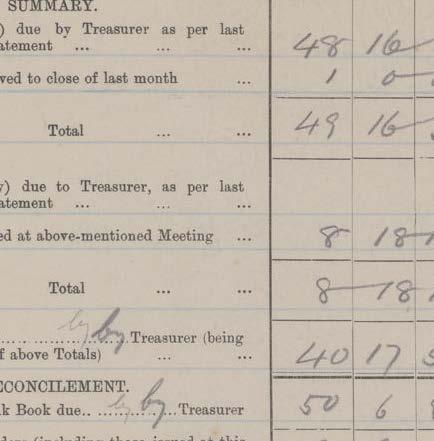 SUMMARY.
) due by Treasurer as per last
atement ... ... ... 48 16
ved to close of last month ... 1 0
Total ... ... 49 16
y) due to Treasurer, as per last
atement ... ... ...
ed at above-mentioned Meeting ... 8 18
Total ... ... 8 18
by by Treasurer (being
f above Totals) ... ... 40 17 5
ECONCILEMENT.
k Book due.. by by Treasurer 50 6 8